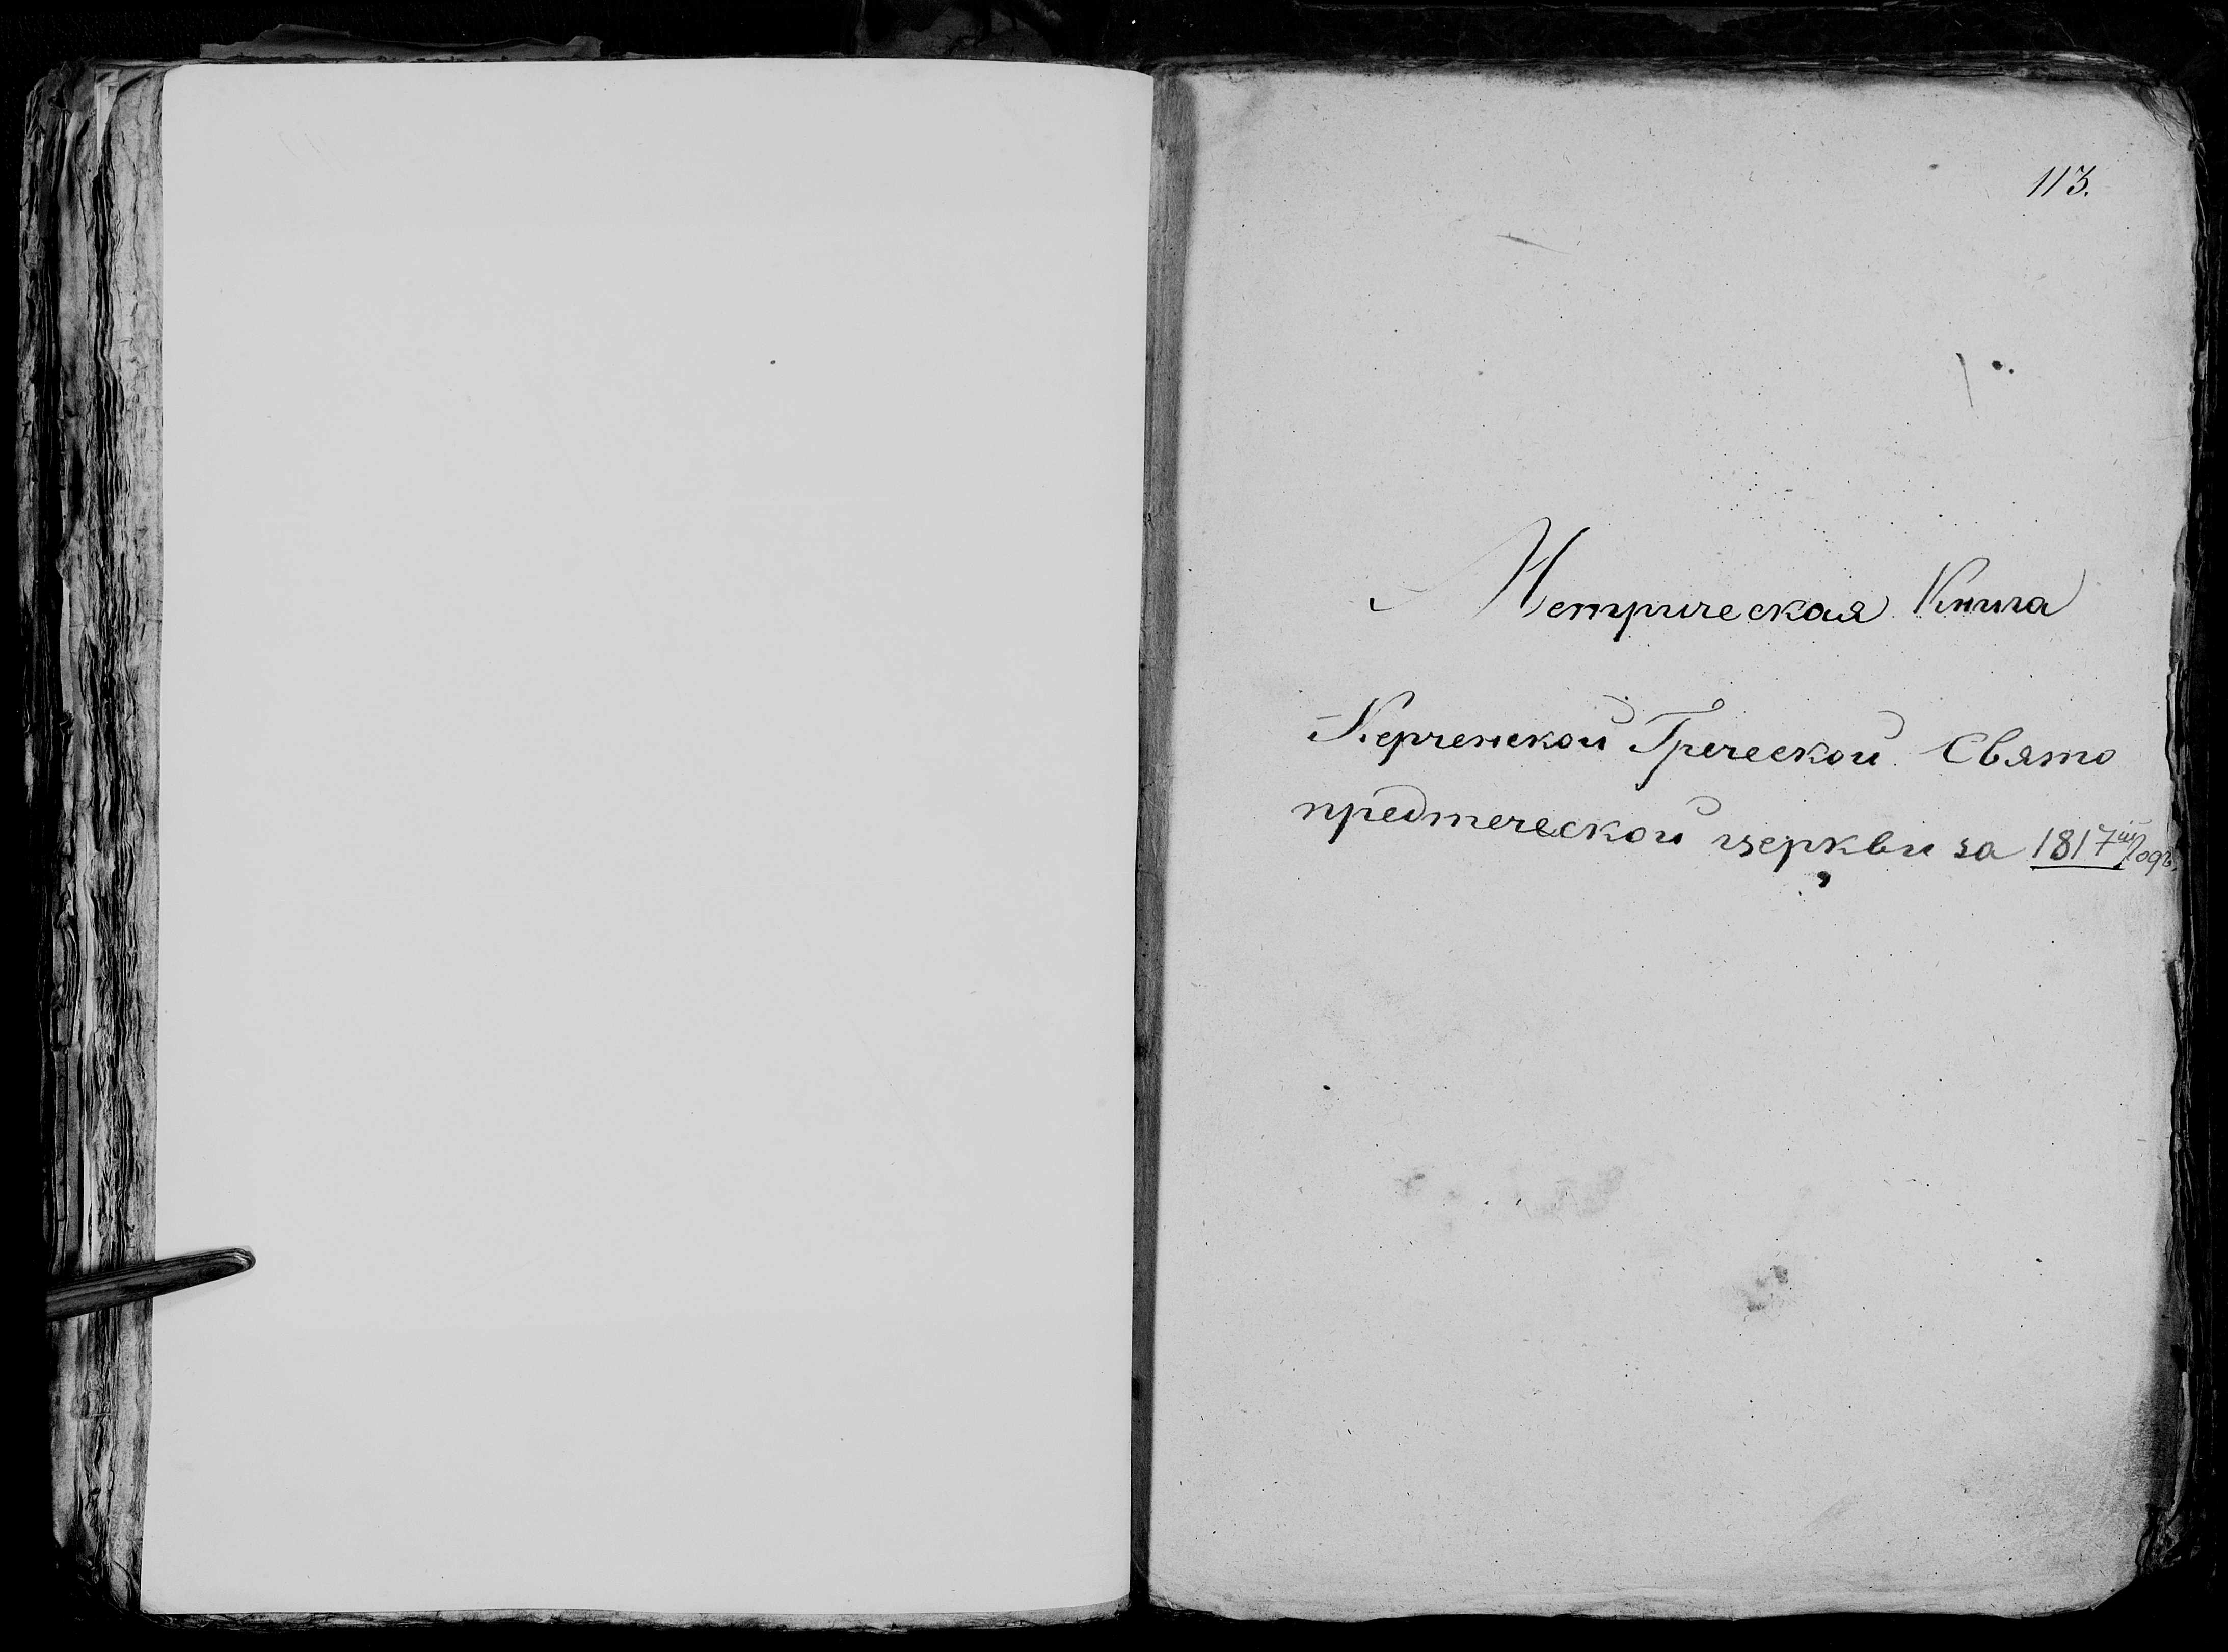 113.
Метрическая Книга
Керченской Греческой Свято
предтеческой церкви за 1817й годъ.